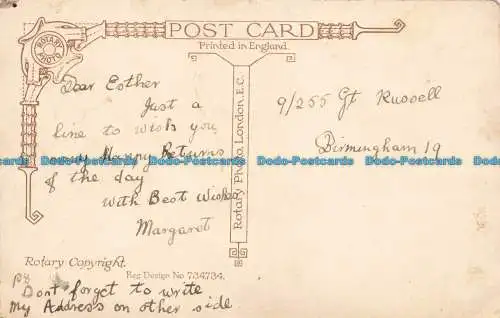 POST CARD
Printed in England.
ROTARY PHOTO
Dear Esther
Just a
line to wish you
Many Happy Returns
of the day
With Best Wishes
Margaret
9/255 Gt Russell
Birmingham 19
Rotary Photo, London, E.C.
Dodo-Postcards Dodo-Postcards Dodo-Postcards Dodo-Postcards Dodo-Postcards Dodo-Postcards
Rotary Copyright.
Reg Design No 734,734.
PS
Dont forget to write
My Address on other side